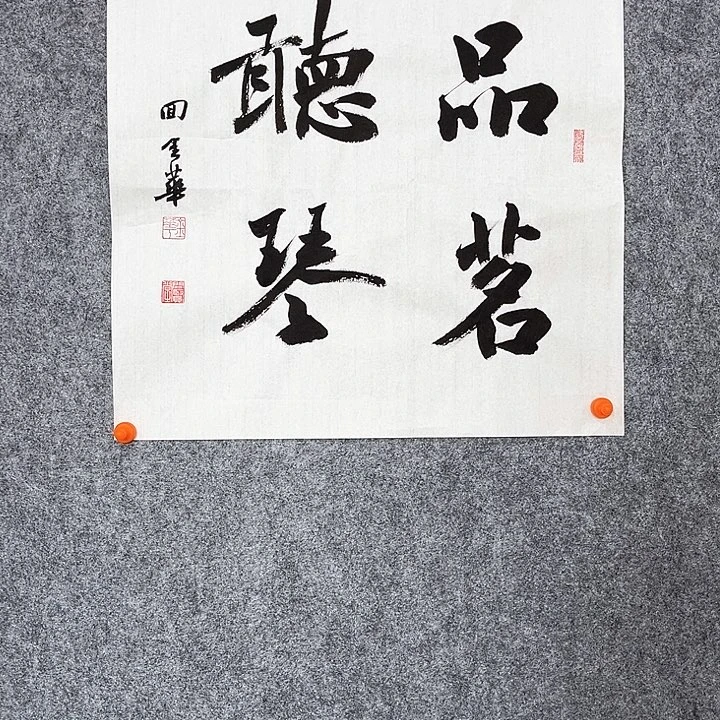 品茗
聽琴
田金華